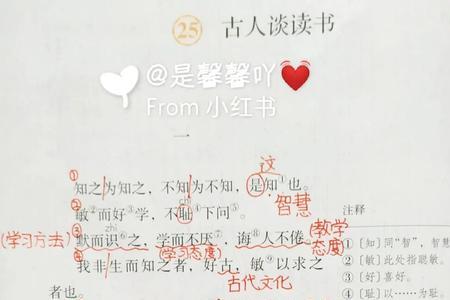 25 古人谈读书
@是馨馨吖
From 小红书
一
这
①知之为知之，不知为不知，是知①也。
智慧
chǐ
②敏②而好③学，不耻④下问⑤。
注释
zhì
(学习方法) ③默而识⑥之，学而不厌⑦，诲⑧人不倦。 (教学态度)
(学习态度)
①〔知〕同“智”，智慧
②〔敏〕此处指聪敏。
④我非生而知之者，好古，敏⑨以求之
古代文化
③〔好〕喜好。
者也。
④〔耻〕以……为耻。